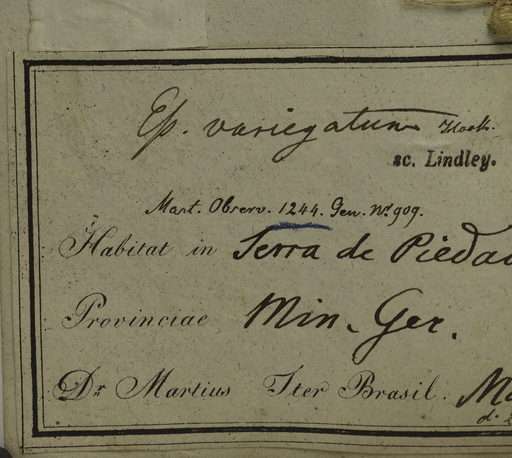 Ep. variegatum Hook.
sc. Lindley.
Mart. Observ. 1244. Gen. No. 909.
Habitat in Serra de Piedad
Provinciae Min. Ger.
Dr Martius Iter Brasil.